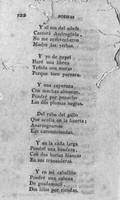 122 POESIAS
Y al son del adufe
Cantará Andrehuela,
No me
Madre las verbas.
Y yo de papel
Haré una librea
Teñida con moras
Porque bien parezca,
Y una caperuza
Con muchas almenas;
Pondré por penacho
Las dos plumas negras
Del rabo del gallo
Que acullá en la huerta
Anaranjeamos
Las carnestolendas.
Y en la caña larga
Pondré una bandera,
Con dos borlas blancas
En sus trenzaderas
Y en mi caballito
Pondré una cabeza
De guadamecí,
Dos hilos por riendas.